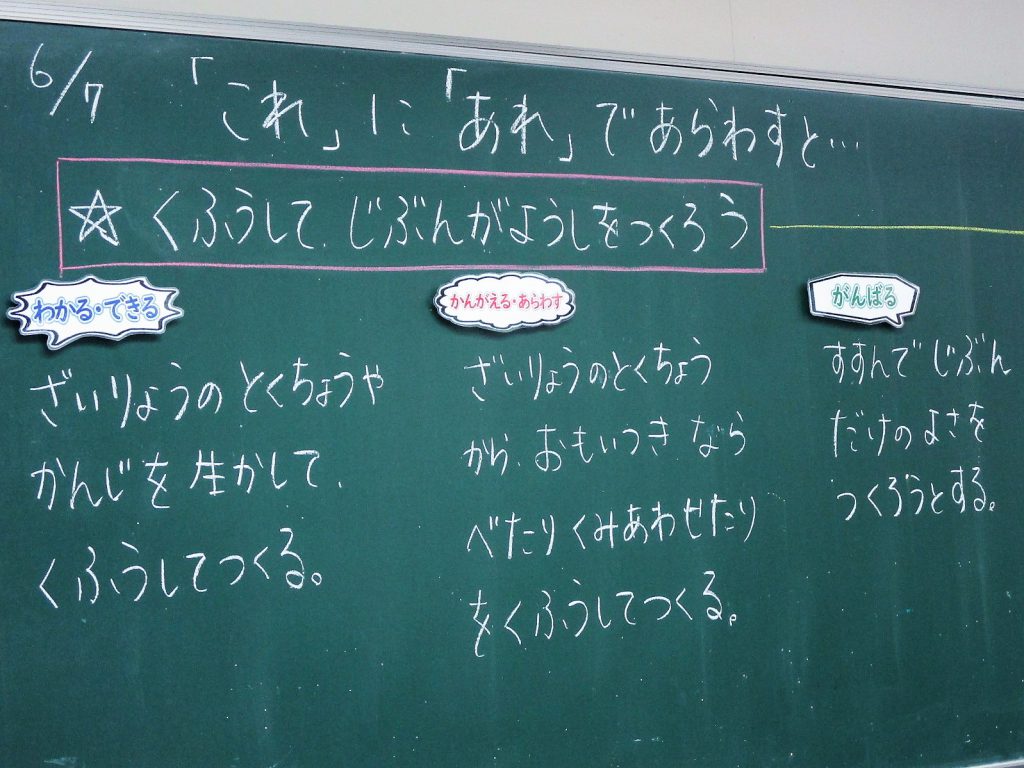 6/7 「これ」に「あれ」であらわすと…
☆くふうして、じぶんがようしをつくろう
わかる・できる
ざいりょうのとくちょうや
かんじを生かして、
くふうしてつくる。
かんがえる・あらわす
ざいりょうのとくちょう
から、おもいつき なら
べたりくみあわせたり
をくふうしてつくる。
がんばる
すすんでじぶん
だけのよさを
つくろうとする。